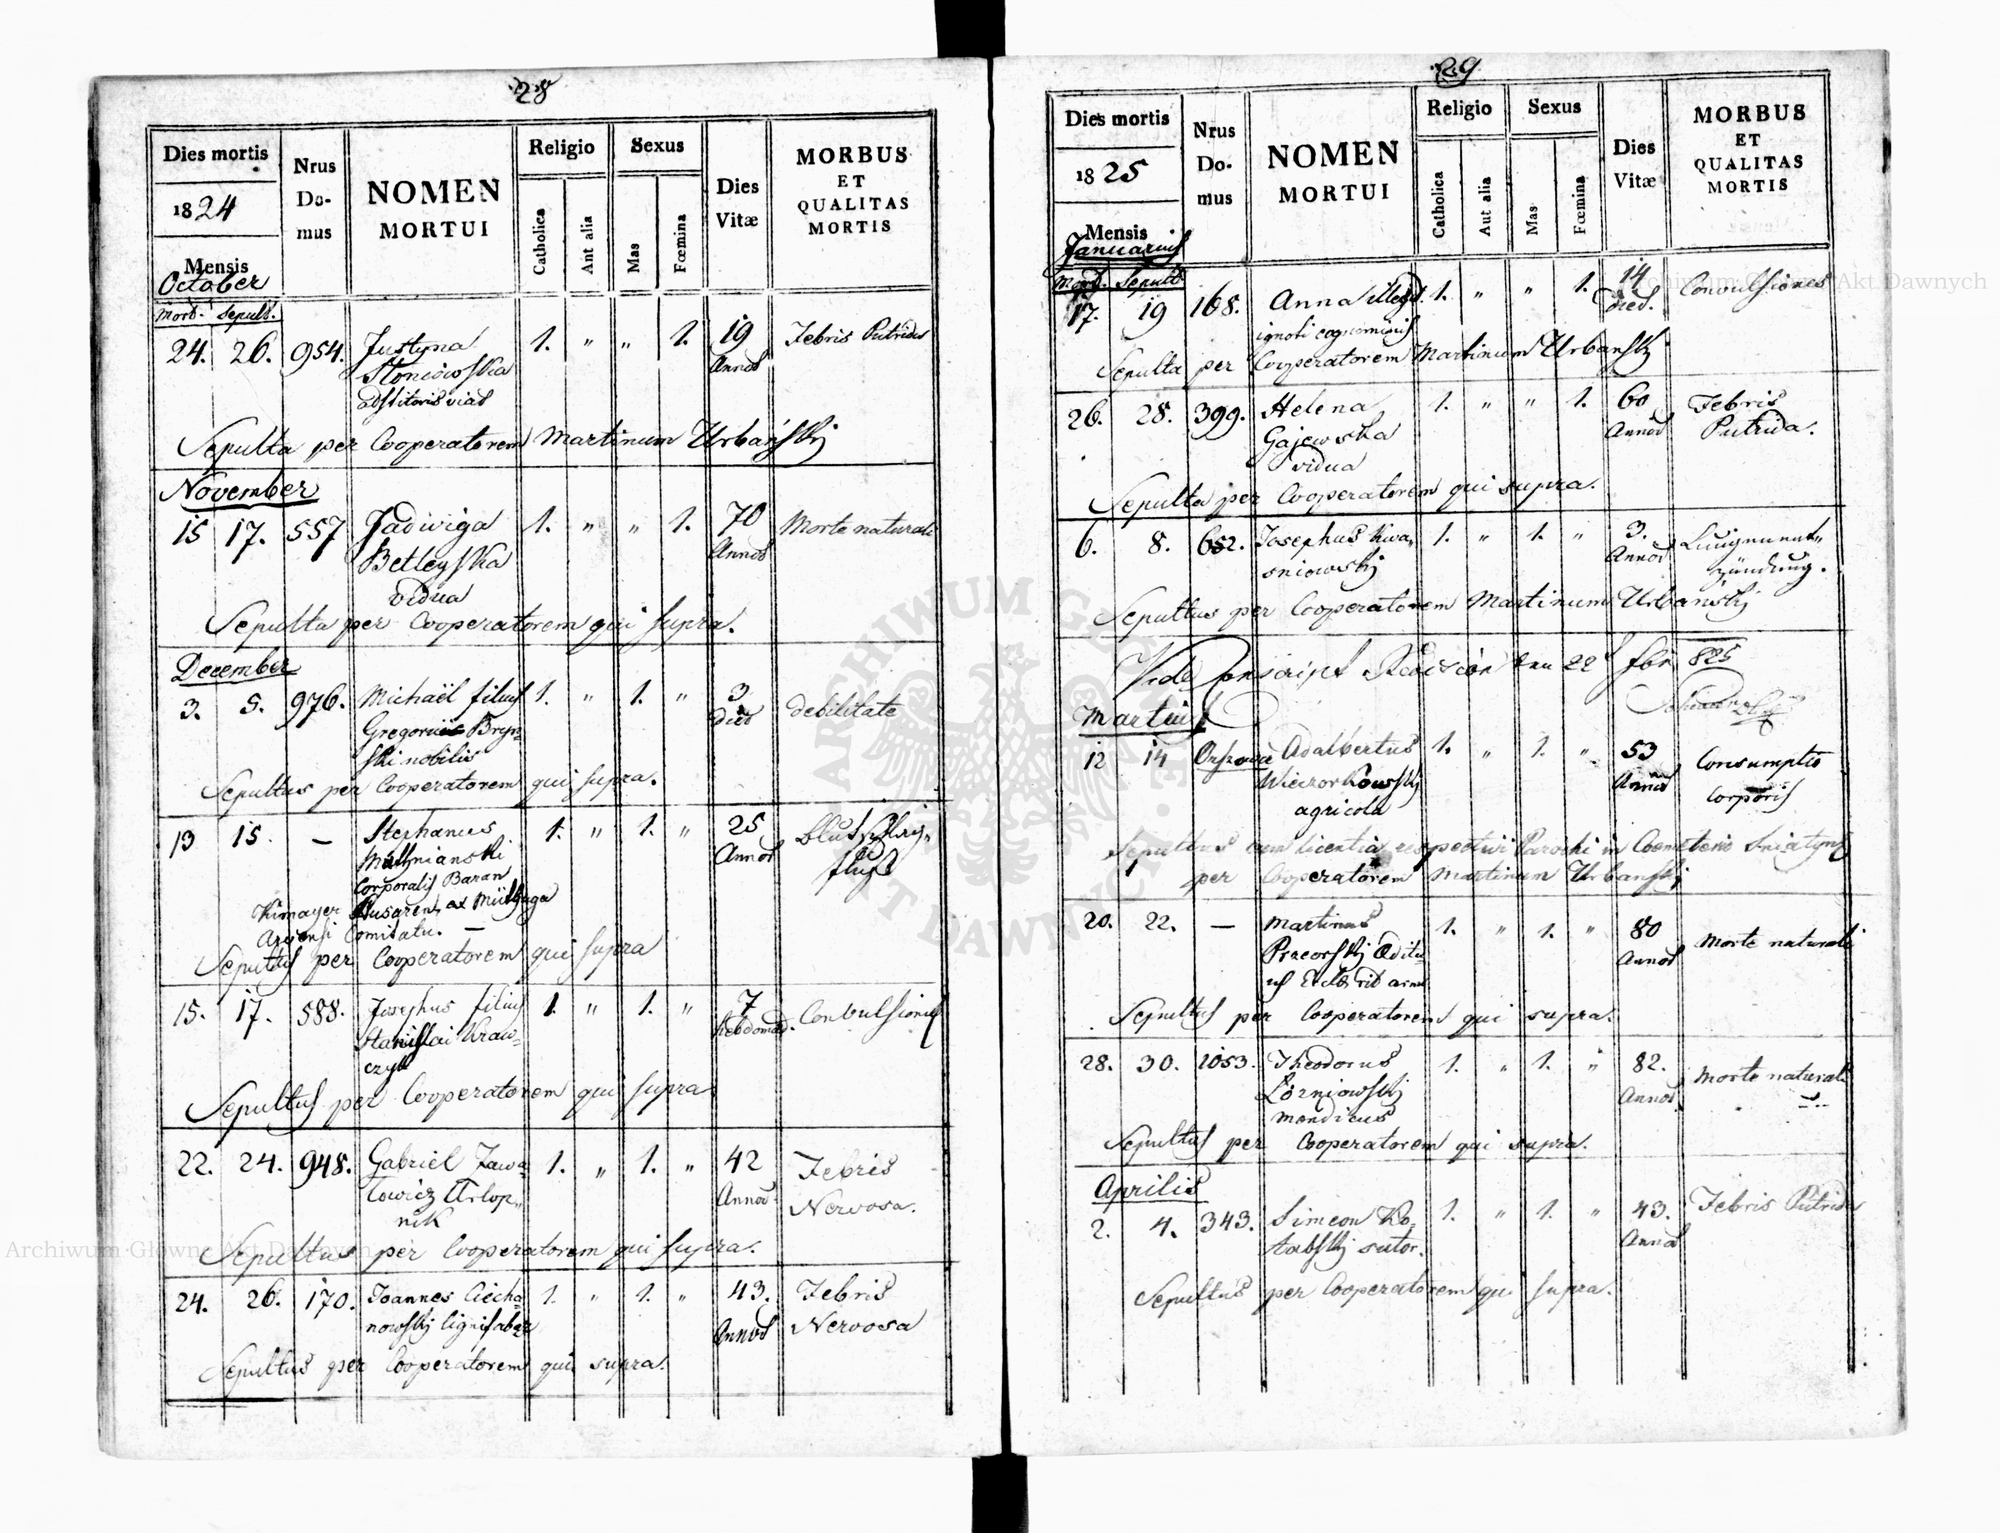 28
Dies mortis
1824
Mensis
October
Nrus Do-mus
NOMEN MORTUI
Religio
Catholica
Aut alia
Sexus
Mas
Fœmina
Dies Vitæ
MORBUS ET QUALITAS MORTIS
Mort. Sepult.
24. 26. 954. Justyna 1. " " 1. 19 Febris Putrida
Annos
Sepulta per Cooperatorem Martinum Urbański
November
15 17. 557 Jadwiga 1. " " 1. 70 Morte naturali
Betleyska Annos
vidua
Sepulta per Cooperatorem qui supra.
December
3. 5. 976. Michaël filius 1. " 1. " 3 debilitate
Gregorii Bryn= dies
ski nobilis
Sepultus per Cooperatorem qui supra.
13 15. — Stephanus 1. " 1. " 25
Annos
Corporalis Baran
Kimayer Husaren ex
Comitatu. —
Sepultus per Cooperatorem qui supra
15. 17. 588. Josephus filius 1. " 1. " 7 Convulsionis
Stanislai Kraw= hebdomad.
czyk
Sepultus per Cooperatorem qui supra
22. 24. 948. Gabriel Jawa= 1. " 1. " 42 Febris
lowicz Urlop= Annos Nervosa.
nik
Sepultus per Cooperatorem qui supra.
24. 26. 170. Joannes Ciecha= 1. " 1. " 43. Febris
nowskij lignifaber Annos Nervosa
Sepultus per Cooperatorem qui supra.
29
Dies mortis
1825
Mensis
Januarius
Nrus Do-mus
NOMEN MORTUI
Religio
Catholica
Aut alia
Sexus
Mas
Fœmina
Dies Vitæ
MORBUS ET QUALITAS MORTIS
Mort. Sepult.
17. 19 168. Anna illegit. 1. " " 1. 14 Convulsiones
ignoti cognominis died.
Sepulta per Cooperatorem Martinum Urbanskij
26. 28. 399. Helena 1. " " 1. 60 Febris
Gajewska Annos Putrida.
vidua
Sepulta per Cooperatorem qui supra.
6. 8. 652. Josephus Kwa= 1. " 1. " 3. Lungenent=
sniowskij Annos zündung.
Sepultus per Cooperatorem Martinum Urbanskij
Vide Conscript Revision 825
Martius
12 14 Adalbertus 1. " 1. " 53 Consumptio
Wieczorkowskij Annos Corporis
agricola
Sepultus cum licentia respectivi Parochi in Coemeterio Sniatyns
per Cooperatorem Martinum Urbanskij
20. 22. — Martinus 1. " 1. " 80 Morte naturali
Annos
Sepultus per Cooperatorem qui supra.
28. 30. 1053. Theodorus 1. " 1. " 82. Morte naturali
mendicus Annos
Sepultus per Cooperatorem qui supra.
Aprilis
2. 4. 343. Simeon 1. " 1. " 43. Febris Putrida
sutor. Annos
Sepultus per Cooperatorem qui supra.
Archiwum Główne Akt Dawnych
Archiwum Główne Akt Dawnych
ARCHIWUM GŁÓWNE AKT DAWNYCH